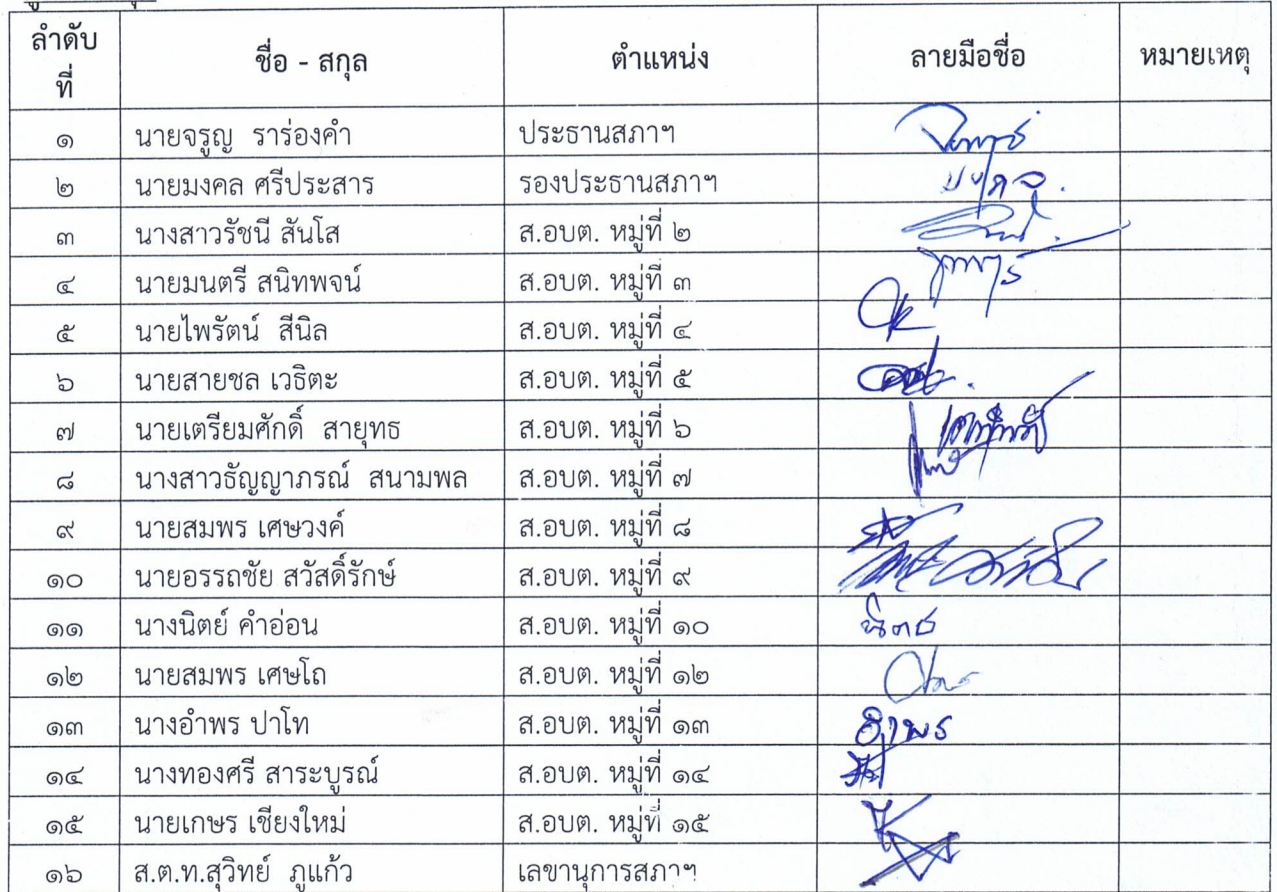 ลำดับที่ ชื่อ - สกุล ตำแหน่ง ลายมือชื่อ หมายเหตุ
๑ นายจรูญ ราร่องคำ ประธานสภาฯ
๒ นายมงคล ศรีประสาร รองประธานสภาฯ
๓ นางสาวรัชนี สันโส ส.อบต. หมู่ที่ ๒
๔ นายมนตรี สนิทพจน์ ส.อบต. หมู่ที่ ๓
๕ นายไพรัตน์ สีนิล ส.อบต. หมู่ที่ ๔
๖ นายสายชล เวธิตะ ส.อบต. หมู่ที่ ๕
๗ นายเตรียมศักดิ์ สายุทธ ส.อบต. หมู่ที่ ๖
๘ นางสาวธัญญาภรณ์ สนามพล ส.อบต. หมู่ที่ ๗
๙ นายสมพร เศษวงค์ ส.อบต. หมู่ที่ ๘
๑๐ นายอรรถชัย สวัสดิ์รักษ์ ส.อบต. หมู่ที่ ๙
๑๑ นางนิตย์ คำอ่อน ส.อบต. หมู่ที่ ๑๐
๑๒ นายสมพร เศษโถ ส.อบต. หมู่ที่ ๑๒
๑๓ นางอำพร ปาโท ส.อบต. หมู่ที่ ๑๓ อำพร
๑๔ นางทองศรี สาระบูรณ์ ส.อบต. หมู่ที่ ๑๔
๑๕ นายเกษร เชียงใหม่ ส.อบต. หมู่ที่ ๑๕
๑๖ ส.ต.ท.สุวิทย์ ภูแก้ว เลขานุการสภาฯ